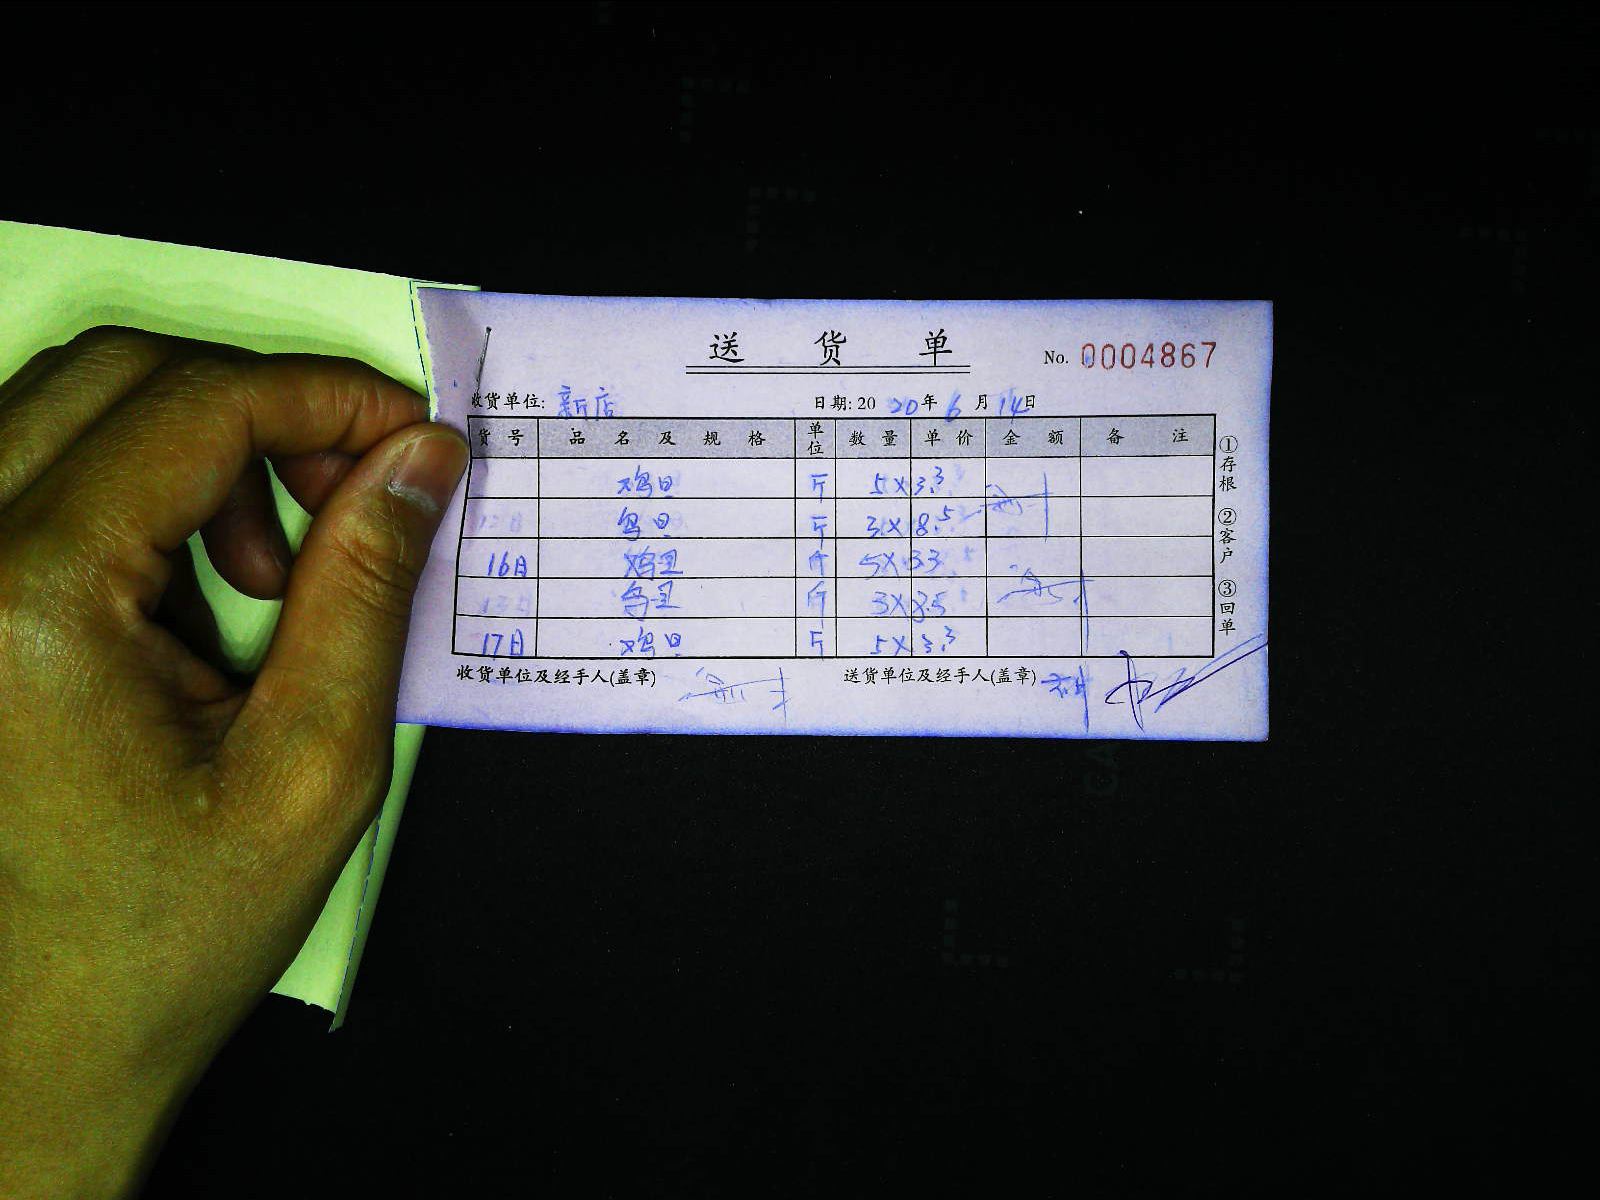 送 货 单
No. 0004867
收货单位: 新店 日期: 20 20年 6 月 14日
货 号 品 名 及 规 格 单位 数 量 单 价 金 额 备 注
鸡旦 斤 5×3.3
鸟旦 斤 3×8.5
16日 鸡旦 斤 5×3.3
鸟旦 斤 3×8.5
17日 鸡旦 斤 5×3.3
收货单位及经手人(盖章) 送货单位及经手人(盖章)
①存根 ②客户 ③回单